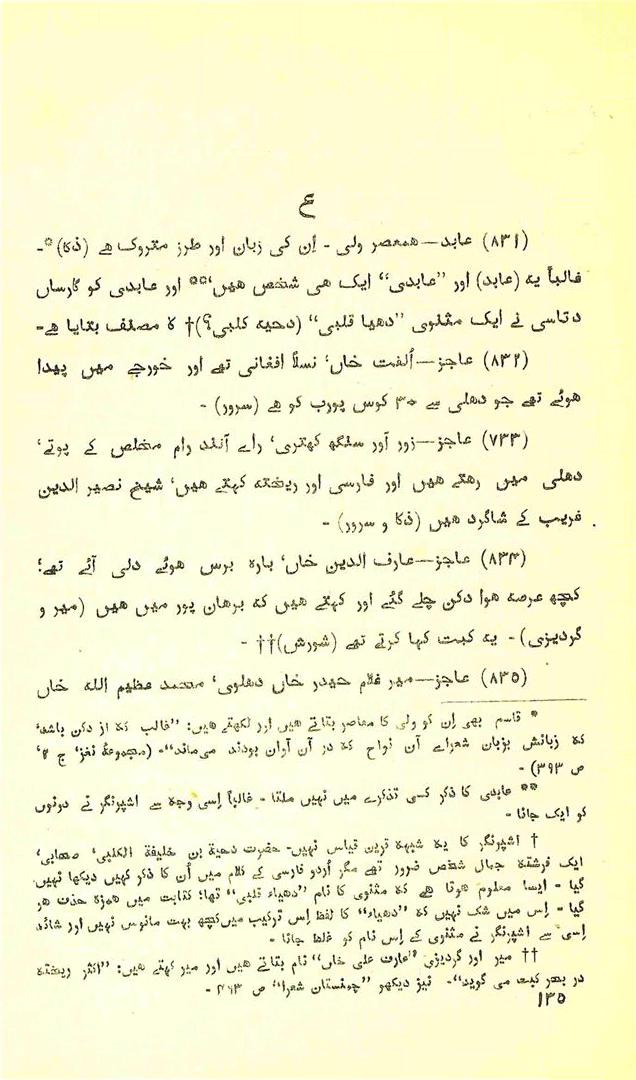 ع
(۸۳۱) عابد—همعصر ولی - اِن کی زبان اور طرز متروک هے (ذکا)*-
غالباً یه (عابد) اور ”عابدی“ ایک هی شخص هیں،** اور عابدی کو گارساں
دتاسی نے ایک مثنوی ”دهیا قلبی“ (دحیه کلبی؟)† کا مصنف بتایا هے-
(۸۳۲) عاجز—اُلفت خاں، نسلاً افغانی تھے اور خورجے میں پیدا
هوئے تھے جو دهلی سے ۳۰ کوس پورب کو هے (سرور) -
(۷۳۳) عاجز—زور آور سنگھ کھتری، راے آنند رام مخلص کے پوتے،
دهلی میں رهتے هیں اور فارسی اور ریخته کہتے هیں، شیخ نصیر الدین
غریب کے شاگرد هیں (ذکا و سرور) -
(۸۳۴) عاجز—عارف الدین خاں، باره برس هوئے دلی آئے تھے؛
کچھ عرصه هوا دکن چلے گئے اور کہتے هیں که برهان پور میں هیں (میر و
گردیزی) - یه کبت کہا کرتے تھے (شورش)†† -
(۸۳۵) عاجز—میر غلام حیدر خاں دهلوی، محمد عظیم الله خاں
* قاسم بھی اِن کو ولی کا معاصر بتاتے هیں اور لکھتے هیں: ”غالب که از دکن باشد،
که زبانش بزبان شعراے آن نواح که در آن آوان بودند می‌ماند“- (مجموعۀ نغز، ج ۲،
ص ۳۹۳) -
** عابدی کا ذکر کسی تذکرے میں نہیں ملتا - غالباً اِسی وجه سے اشپرنگر نے دونوں
کو ایک جانا -
† اشپرنگر کا یه شبہه قرین قیاس نہیں- حضرت دحیة بن خلیفة الکلبی، صحابی،
ایک فرشته جمال شخص ضرور تھے مگر اُردو فارسی کے کلام میں اُن کا ذکر کہیں دیکھا نہیں
گیا - ایسا معلوم هوتا هے که مثنوی کا نام ”دهیاء قلبی“ تھا؛ کتابت میں همزه حذف هو
گیا - اِس میں شک نہیں که ”دهیاء“ کا لفظ اِس ترکیب میں کچھ بہت مانوس نہیں اور شائد
اِسی سے اشپرنگر نے مثنوی کے اِس نام کو غلط جانا -
†† میر اور گردیزی ”عارف علی خاں“ نام بتاتے هیں اور میر کہتے هیں: ”اکثر ریخته
در بحر کبت می گوید“- نیز دیکھو ”چمنستان شعرا“ ص ۴۶۳ -
۱۳۵